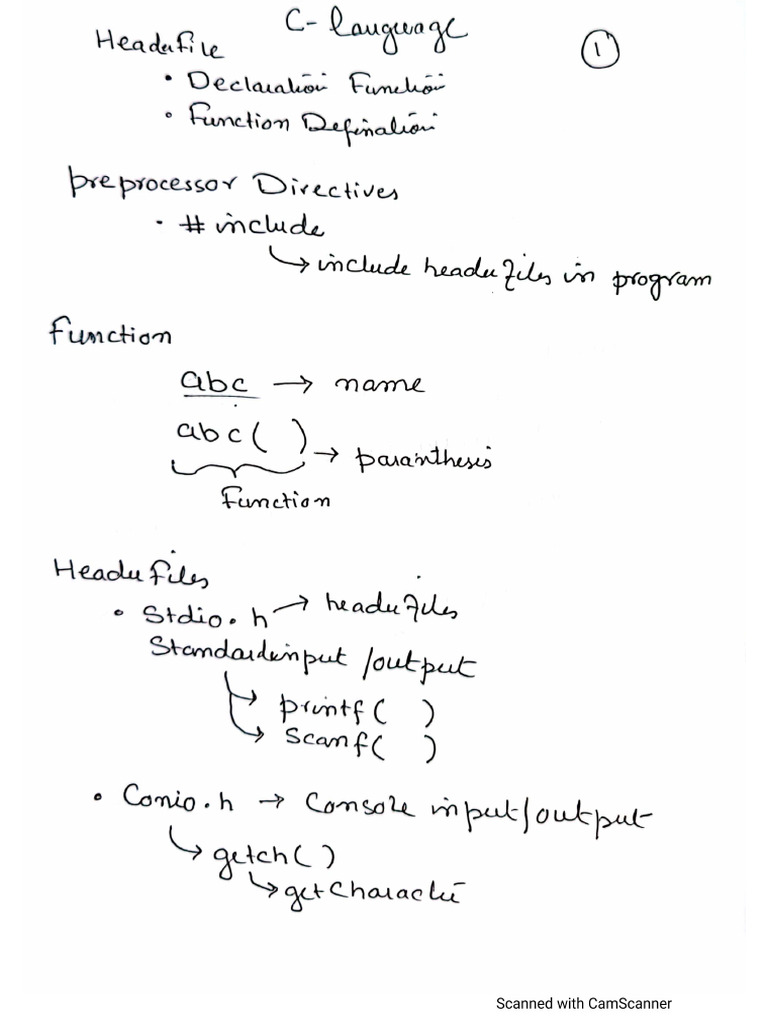 C- language
①
Headerfile
• Declaration Function
• Function Defination
preprocessor Directives
• # include
↳ include header files in program
Function
abc → name
abc ( ) → paranthesis
Function
Header files
• Stdio.h → header files
Standard input /output
→ printf ( )
→ Scanf ( )
• Conio.h → Console input/output
↳ getch( )
↳ get Character
Scanned with CamScanner